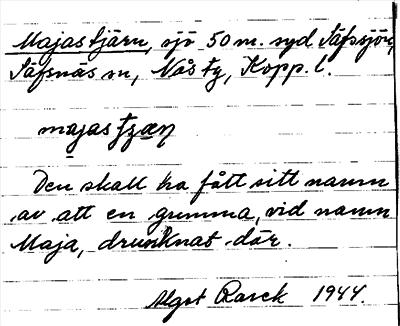 Majastjärn, sjö 50 m. syd Säfssjön,
Säfsnäs sn, Nås ty, Kopp. l.
majas
Den skall ha fått sitt namn
av att en gumma, vid namn
Maja, drunknat där.
1944.